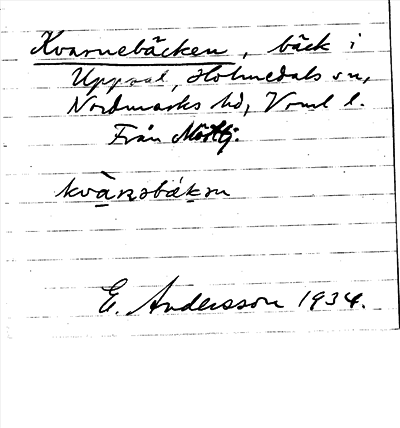 Kvarnebäcken, bäck i
Uppsal, Holmedals sn,
Nordmarks hd, Vrml l.
Från Mörttj.
kvàrnəbǽkən
E. Andersson 1934.